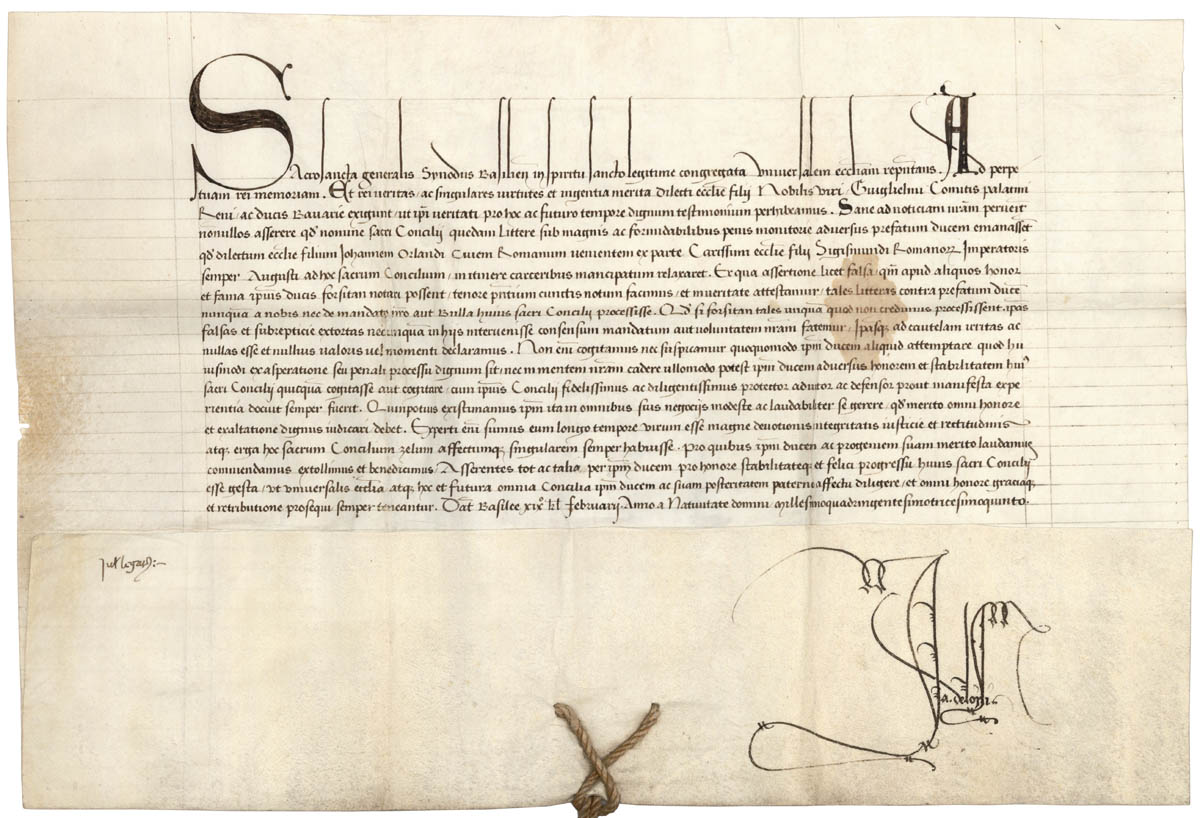 Sacrosancta generalis Synodus Basilien in spiritu sancto legitime congregata Universalem eccliam reprntans. Ad perpe
tuam rei memoriam. Et rei veritas / ac singulares virtutes et ingentia merita dilecti ecclie filii Nobilis viri Guiglhelmi Comitis palatini
Reni / ac ducis Bavarie exigunt / ut ipi veritati pro hoc ac futuro tempore dignum testimonium perhibeamus. Sane ad noticiam nram pervenit
nonnullos asserere qd nomine sacri Concilii quedam littere sub magnis ac formidabilibus penis monitorie adversus prefatum ducem emanassent
qd dilectum ecclie filium Johannem Orlandi Civem Romanum venientem ex parte Carissimi ecclie filii Sigismundi Romanorz Imperatoris
semper Augusti ad hoc sacrum Concilium / in itinere carceribus mancipatum relaxaret. Ex qua assertione licet falsa / qm apud aliquos honor
et fama ipius ducis forsitan notari possent / tenore pntium cunctis notum facimus / et in veritate attestamur / tales litteras contra prefatum duce
nunqua a nobis nec de mandato nro aut Bulla huius sacri Concilii processisse. Qd si forsitan tales unqua quod non credimus processissent. ipas
falsas et subrepticie extortas nec unqua in hijs intervenisse consensum mandatum aut voluntatem nram fatemur / Ipasq ad cautelam irritas ac
nullas esse et nullius valoris vel momenti declaramus. Non eni cogitamus nec suspicamur quoquomodo ipm ducem aliquid attemptare quod hu
iusmodi exasperatione seu penali processu dignum sit / nec in mentem nram cadere ullo modo potest ipm ducem adversus honorem et stabilitatem hui9
sacri Concilii quicqua cogitasse aut cogitare / cum ipius Concilii fidelissimus ac diligentissimus protector adiutor ac defensor prout manifesta expe
rientia docuit semper fuerit. Quinpotius existimamus ipm ita in omnibus suis negocijs modeste ac laudabiliter se gerere / qd merito omni honore
et exaltatione dignus iudicari debet. Experti eni sumus eum longo tempore virum esse magne devotionis integritatis iusticie et rectitudinis
atq erga hoc sacrum Concilium zelum affectumq singularem semper habuisse. Pro quibus ipm ducem ac progeniem suam merito laudamus
commendamus extollimus et benedicimus / Asserentes tot ac talia / per ipm ducem pro honore stabilitateq et felici progressu huius sacri Concilii
esse gesta / ut universalis ecclia / atq hoc et futura omnia Concilia ipm ducem ac suam posteritatem paterni affectu diligere / et omni honore graciaq
et retributione prosequi semper teneantur. Dat Basilee xix kl februarij. Anno a Nativitate domini Millesimoquadringentesimotricesimoquinto.